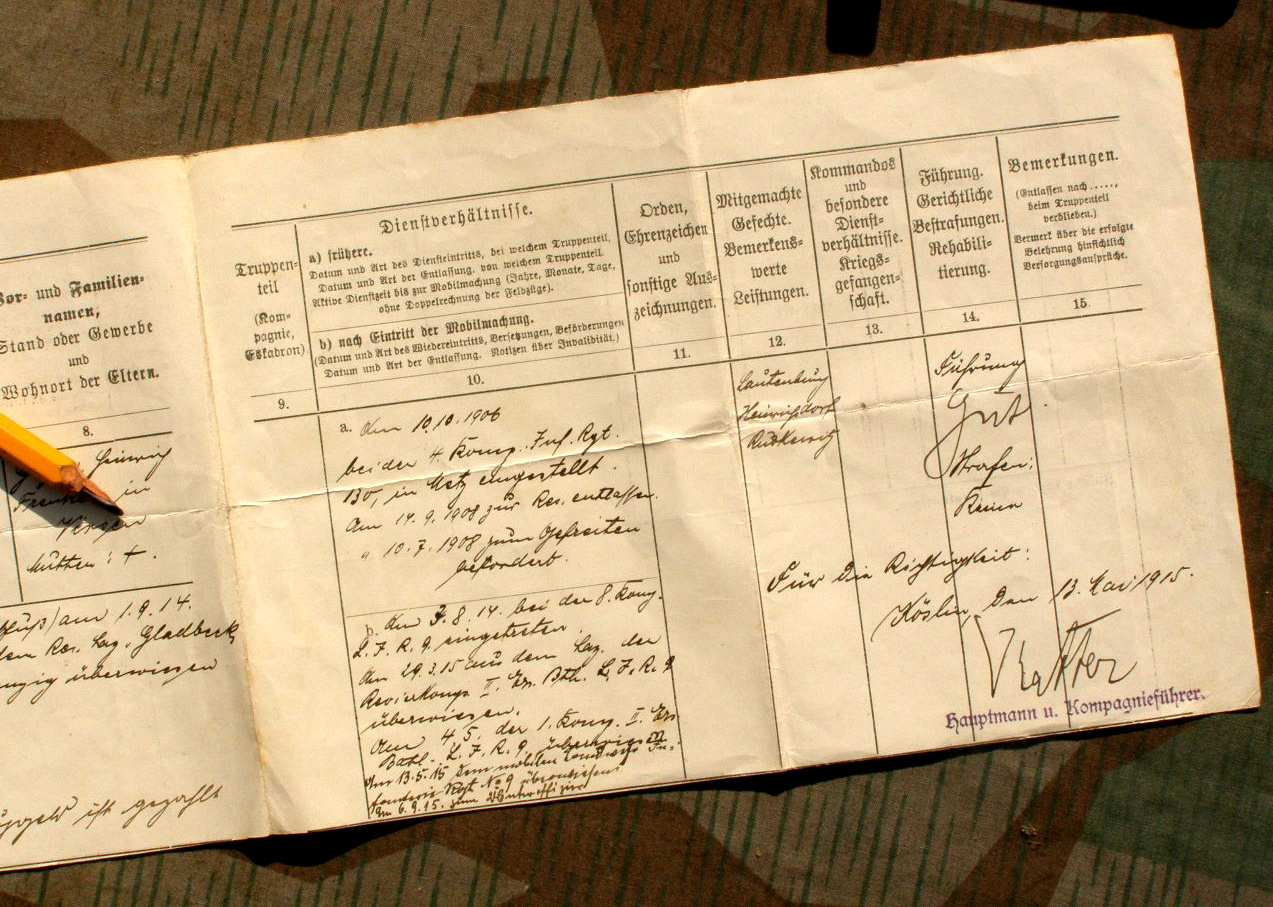 Vor- und Familien-
namen,
Stand oder Gewerbe
und
Wohnort der Eltern.
8.
Heinrich
in
Mutter: +.
am 1.9.14.
Gladbeck
überwiesen
ist gezahlt
Truppen-
teil
(Kom-
pagnie,
Eskadron)
9.
Dienstverhältnisse.
a) frühere.
Datum und Art des Diensteintritts, bei welchem Truppenteil,
Datum und Art der Entlassung, von welchem Truppenteil.
Aktive Dienstzeit bis zur Mobilmachung (Jahre, Monate, Tage,
ohne Doppelrechnung der Feldzüge).
b) nach Eintritt der Mobilmachung.
(Datum und Art des Wiedereintritts, Versetzungen, Beförderungen
Datum und Art der Entlassung. Notizen über Invalidität.)
10.
a. Am 10.10.1906
bei der 4. Komp. Inf. Rgt.
130, in Metz eingestellt.
Am 14.9.1908 zur Res. entlassen.
" 10.7.1908 zum Gefreiten
befördert.
b. Am 3.8.14. bei der 8. Komp.
L.J.R.9 eingetreten.
Am 29.3.15 aus dem Laz. der
Revierkomp. II. Ers. Btl. L.J.R.9
überwiesen.
Am 4.5. der 1. Komp. I. Ers
Batl. L.J.R.9. überwiesen
Am 13.5.15 dem mobilen Landwehr In-
fanterie Rgt No 9 überwiesen
Am 6.9.15. zum Unteroffizier
Orden,
Ehrenzeichen
und
sonstige Aus-
zeichnungen.
11.
Mitgemachte
Gefechte.
Bemerkens-
werte
Leistungen.
12.
Lautenburg
Heinrichsdorf
Kommandos
und
besondere
Dienst-
verhältnisse.
Kriegs-
gefangen-
schaft.
13.
Führung.
Gerichtliche
Bestrafungen.
Rehabili-
tierung.
14.
Führung
Gut
Strafen:
Keine
Bemerkungen.
(Entlassen nach .....,
beim Truppenteil
verblieben.)
Vermerk über die erfolgte
Belehrung hinsichtlich
Versorgungsansprüche.
15.
Für die Richtigkeit:
Köslin, den 13. Mai 1915.
Hauptmann u. Kompagnieführer.